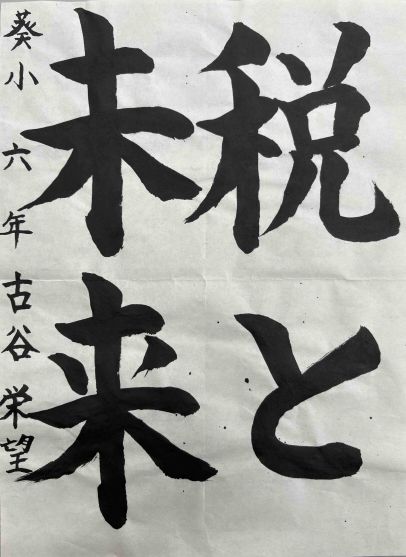 税と
未来
葵小六年古谷栄望